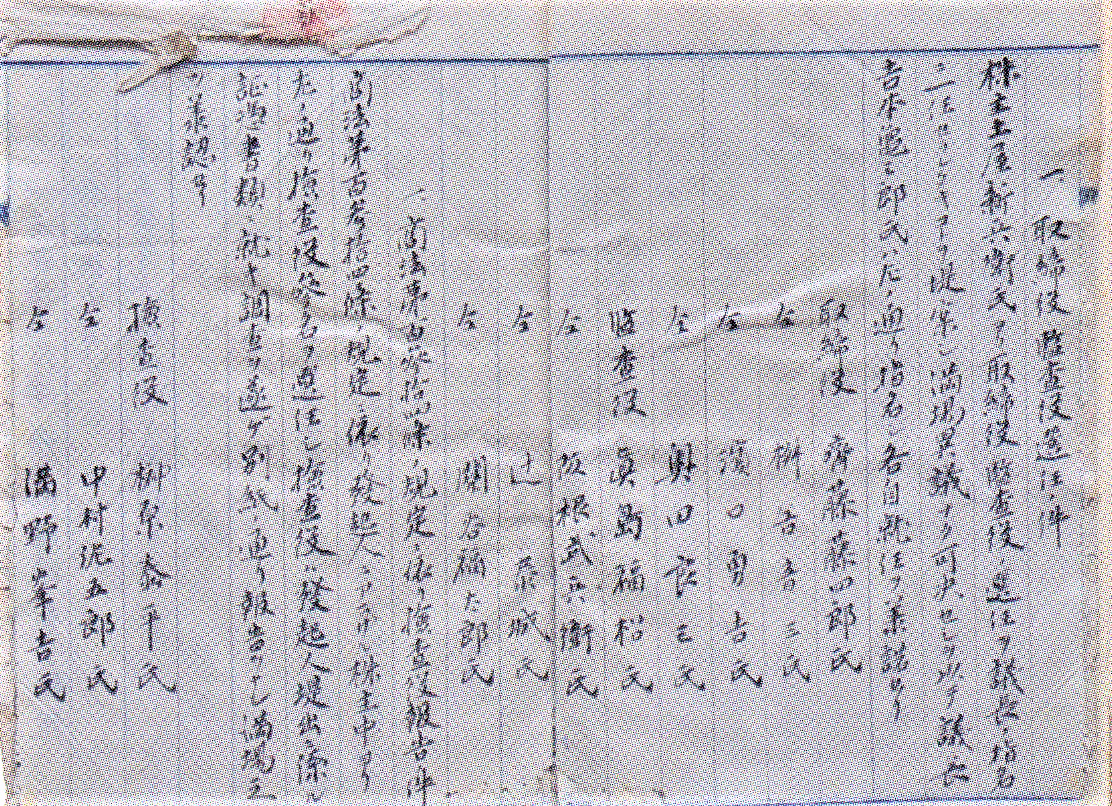 一、取締役監査役選任ノ件
株主土屋新兵衛氏ヨリ取締役監査役ノ選任ヲ議長ノ指名
ニ任サレタキヲ提案シ満場異議ナク可決セシヲ以テ議長
吉本 郎氏ハ左ノ通リ指名シ各自就任ヲ承諾セリ
取締役 齊藤藤四郎氏
仝 吉 氏
仝 濱口勇吉氏
仝 奥田 三氏
監査役 眞島福松氏
仝 阪根武兵衛氏
仝 辻 城氏
仝 関谷福太郎氏
一、商法第百参拾四條ノ規定ニ依リ検査役報告ノ件
商法第百参拾四條ノ規定ニ依リ發起人ニアラザル株主中ヨリ
左ノ通リ検査役参名ヲ選任シ検査役ハ發起人提出ニ係ル
証憑書類ニ就キ調査ヲ遂ゲ別紙ノ通リ報告ヲナシ満場之
ヲ承認セリ
検査役 桝原 平氏
仝 中村 五郎氏
仝 満野峯吉氏